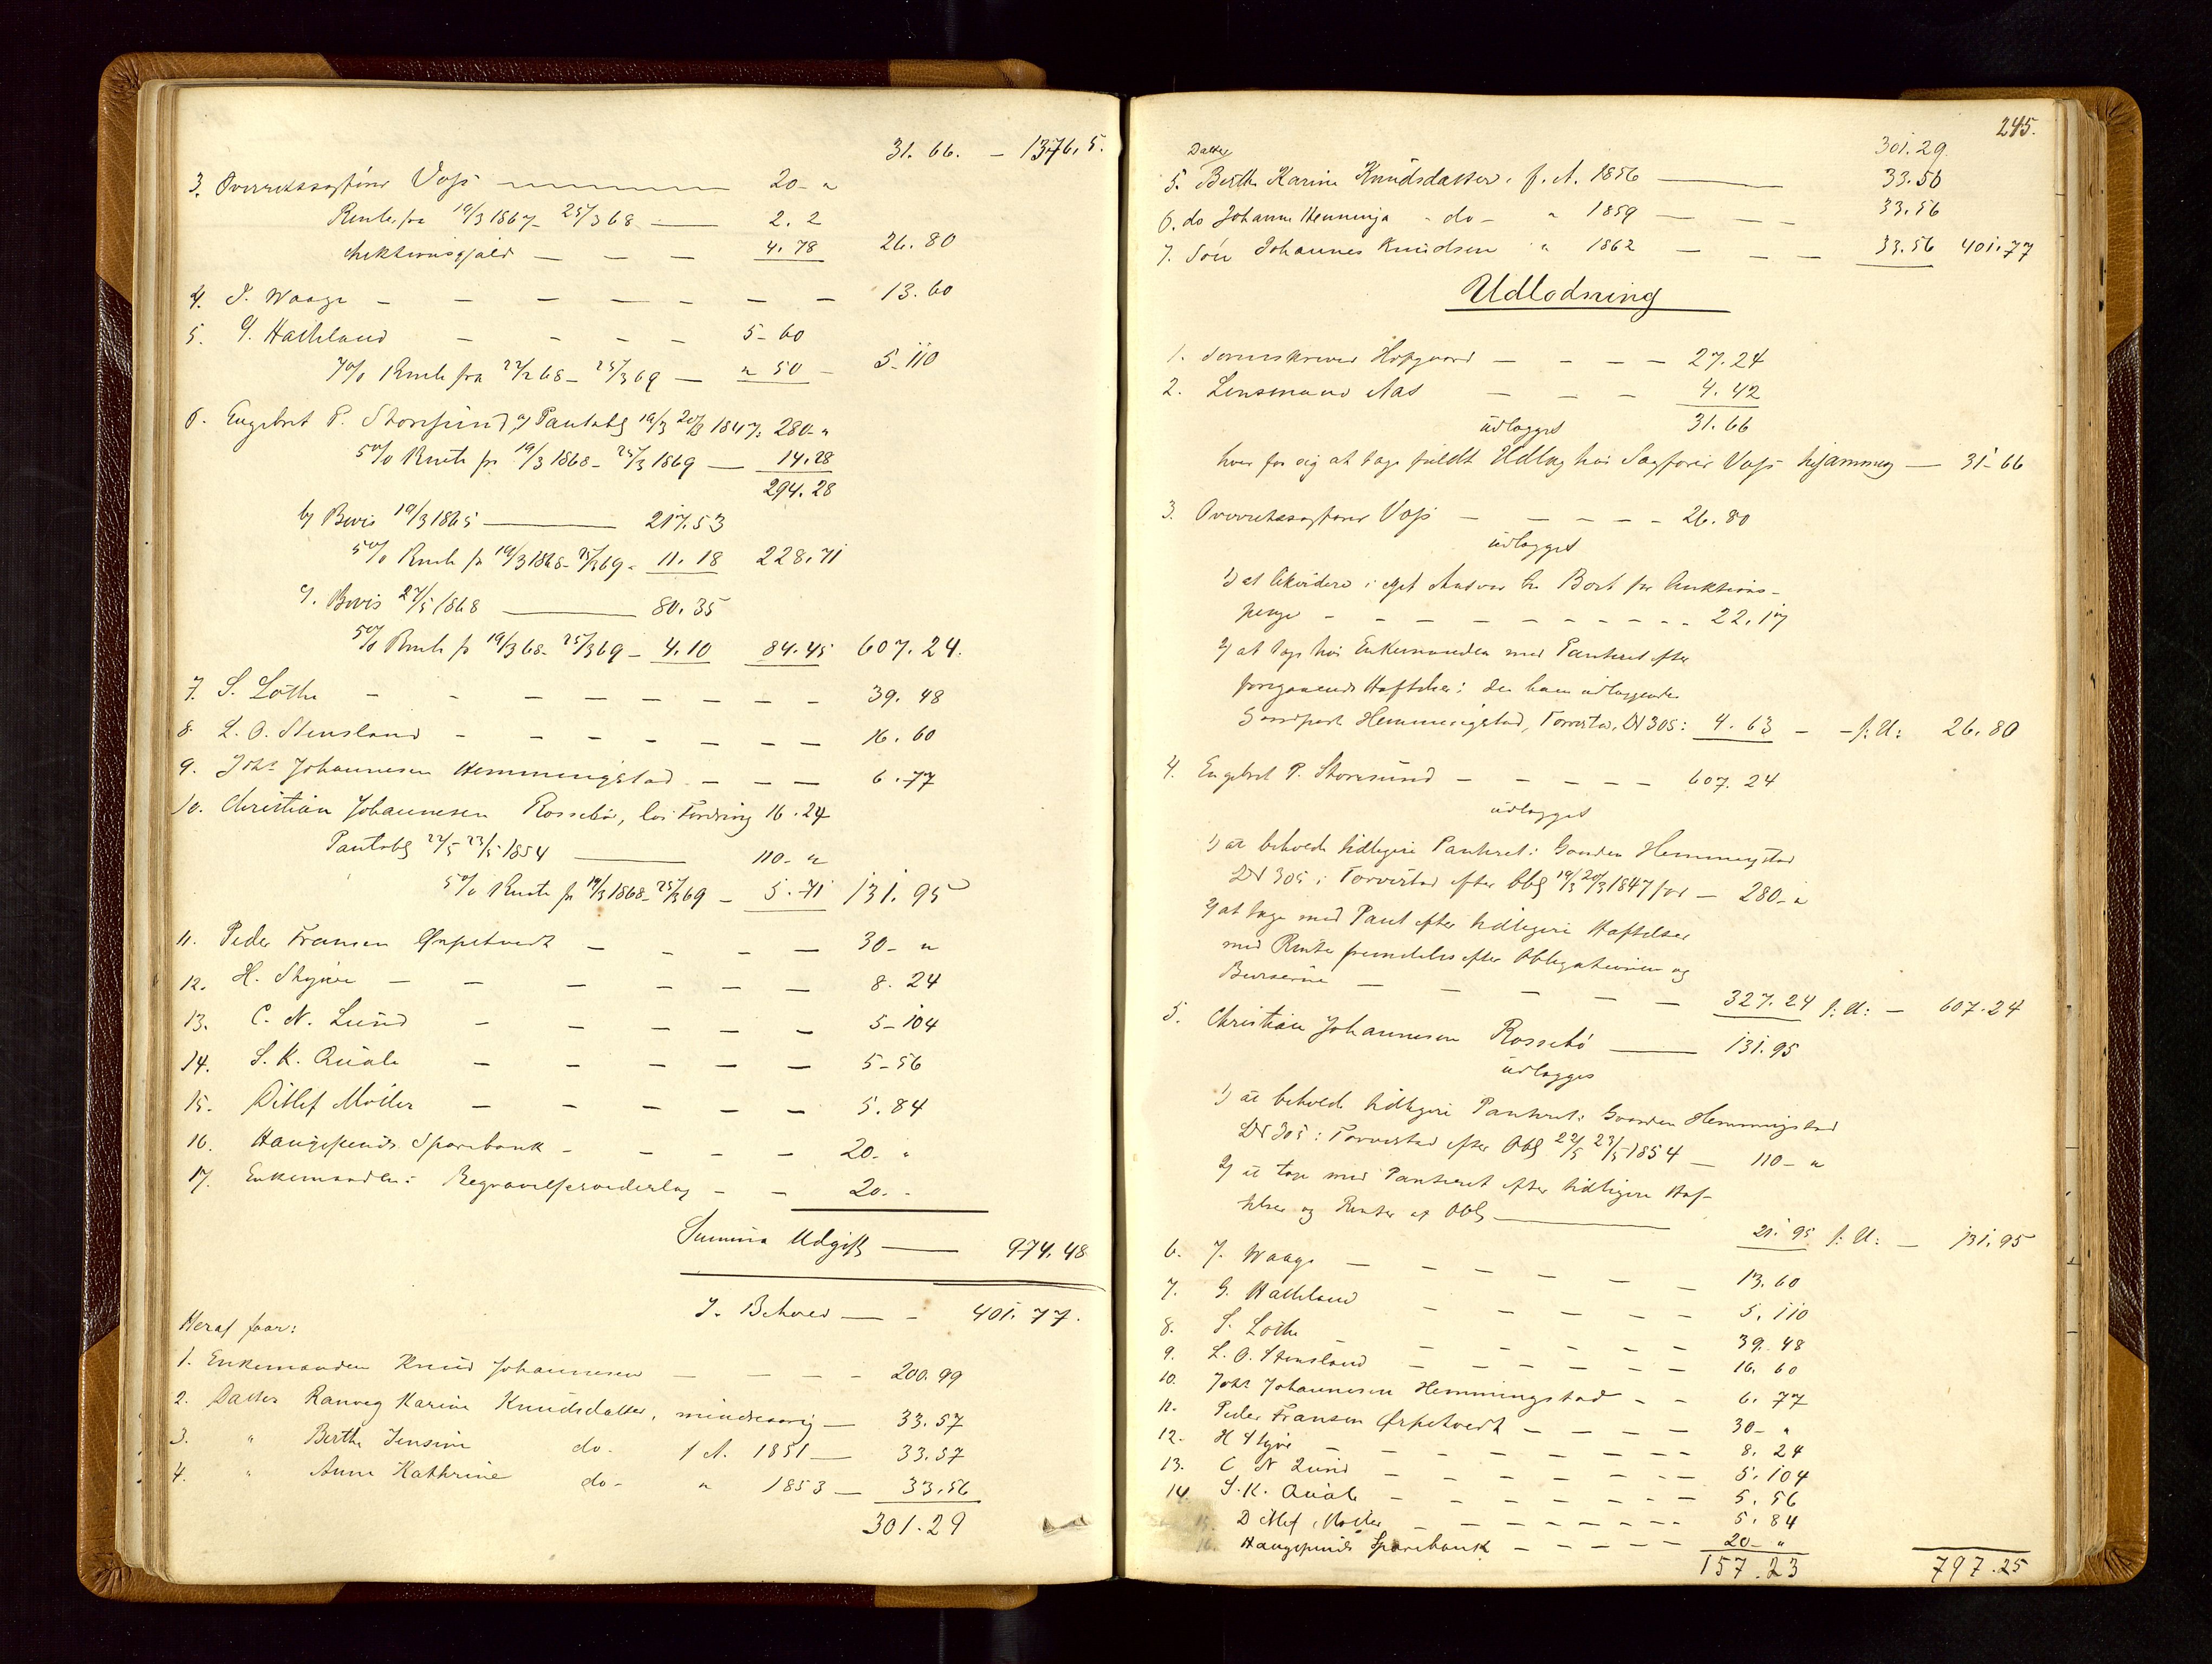 31. 66. – 1376. 5.
3. Overretssagfører Voss 20 – "
Rente fra 19/3 1867 – 25/3 68 — 2. 2
Auktionsgjæld — — — 4. 78 26. 80
4. J. Waage — — — — — — 13. 60
5. G. Hatteland — — — — 5 – 60
7% Rente fra 22/2 68 – 25/3 69 — " 50 — 5 – 110
6. Engebret P. Storesund, a) Pantobl 19/3 20/3 1847: 280 – "
5% Rente fr 19/3 1868 – 25/3 1869 — 14. 28
294. 28
b) Bevis 19/3 1865 — 217. 53
5% Rente fr 19/3 1868 – 25/3 69 – 11. 18 228. 71
c). Bevis 27/5 1868 — 80. 35
5% Rente fr 19/3 68 – 25/3 69 – 4. 10 84. 45 607. 24.
7. S. Lothe — — — — — — — 39. 48
8. L. O. Stensland — — — — — — 16. 60
9. Johs Johannesen Hemmingstad — — — 6. 77
10. Christian Johannesen Rossebø, løs Fordring 16. 24
Pantobl 22/5 23/5 1854 — 110 – "
5% Rente fr 19/3 1868 – 25/3 69 – 5. 71 131. 95
11. Peder Fransen Ørpetvedt — — — — 30 – "
12. H. Styve — — — — — — 8. 24
13. C. N. Lund — — — — — 5 – 104
14. S. K. Quale — — — — — 5 – 56
15. Ditlef Møller — — — — — 5. 84
16. Haugesunds Sparebank — — — — 20 – "
17. Enkemanden: Begravelsesvederlag — — 20. –
Summa Udgift — 974. 48
I. Behold — — 401. 77.
Heraf faar:
1. Enkemanden Knud Johannesen — — — — 200. 99
2. Datter Ranveg Karine Knudsdatter, mindreaarig — 33. 57
3. " Berthe Jensine do – f. A. 1851 — 33. 57
4. " Anne Kathrine do – " 1853 — 33. 56
301. 29
245.
301. 29.
Datter
5. Berthe Karine Knudsdatter. f. A. 1856 — 33. 56
6. do Johanne Henninga – do – " 1859 — — — 33. 56
7. Søn Johannes Knudsen " 1862 — — — 33. 56 401. 77
Udlodning
1. Sorenskriver Hofgaard — — — — 27. 24
2. Lensmand Aas — — — 4. 42
udlægges 31. 66
hver for sig at tage fuldt Udlæg hos Sagfører Voss hjemmeg — 31 – 66
3. Overretssagfører Voss — — — — — 26. 80
udlægges
1) at likvidere i eget Ansvar til Boet for Auktions-
penge — — — — — — — — 22. 17
2) at tage hos Enkemanden med Panteret efter
foregaaende Hæftelser i den ham udlæggende
Gaardpart Hemmingstad, Torvestad, LN 305: 4. 63 — – f: U: 26. 80
4. Engebret P. Storesund — — — — — 607. 24
udlægges
1) at beholde tidligere Panteret i Gaarden Hemmingstad
LN 305 i Torvestad efter Obl 19/3 20/3 1847 for — 280 – "
2) at tage med Pant efter tidligere Hæftelser
med Rente fremdeles efter Obligationen og
Beviserne — — — — — — 327. 24 f: U: — 607. 24
5. Christian Johannesen Rossebø — 131. 95
udlægges
1) at beholde tidligere Panteret i Gaarden Hemmingstad
LN 305 i Torvestad efter Obl 22/5 23/5 1854 — 110 – "
2) at tage med Panteret efter tidligere Hæf-
telser og Renter af Obl — 21. 95 f: U: — 131. 95
6. J. Waage — — — — — — 13. 60
7. G. Hatteland — — — — 5. 110
8. S. Lothe — — — — — 39. 48
9. L. O. Stensland — — — — — 16. 60
10. Johs Johannesen Hemmingstad — — 6. 77
11. Peder Fransen Ørpetvedt — — — — 30 – "
12. H Styve — — — — — — 8. 24
13. C N Lund — — — — — — 5. 104
14. S. K. Quale — — — — — — 5. 56
15. Ditlef Møller — — — — — — 5. 84
16. Haugesunds Sparebank — — — — — 20 – "
157. 23 797. 25